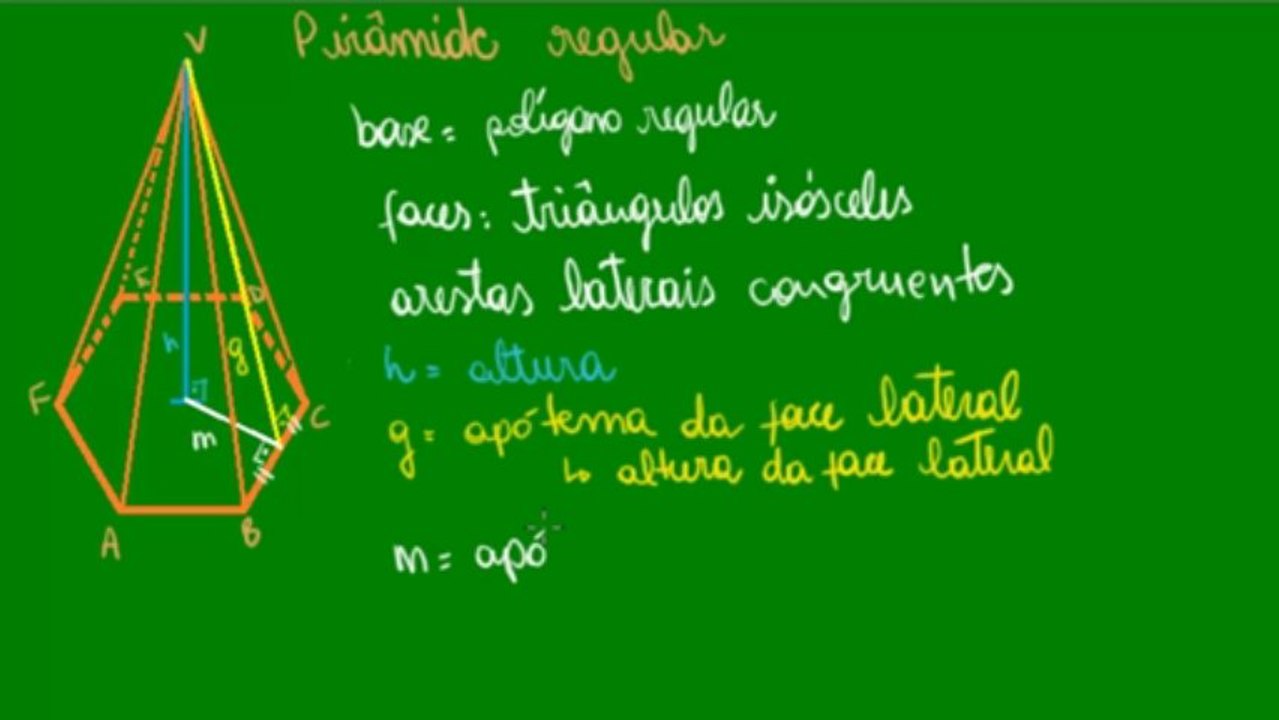 V
Pirâmide regular
base = polígono regular
faces: triângulos isósceles
arestas laterais congruentes
E
D
h
g
h = altura
F
C
g = apótema da face lateral
m
↳ altura da face lateral
A
B
m = apó